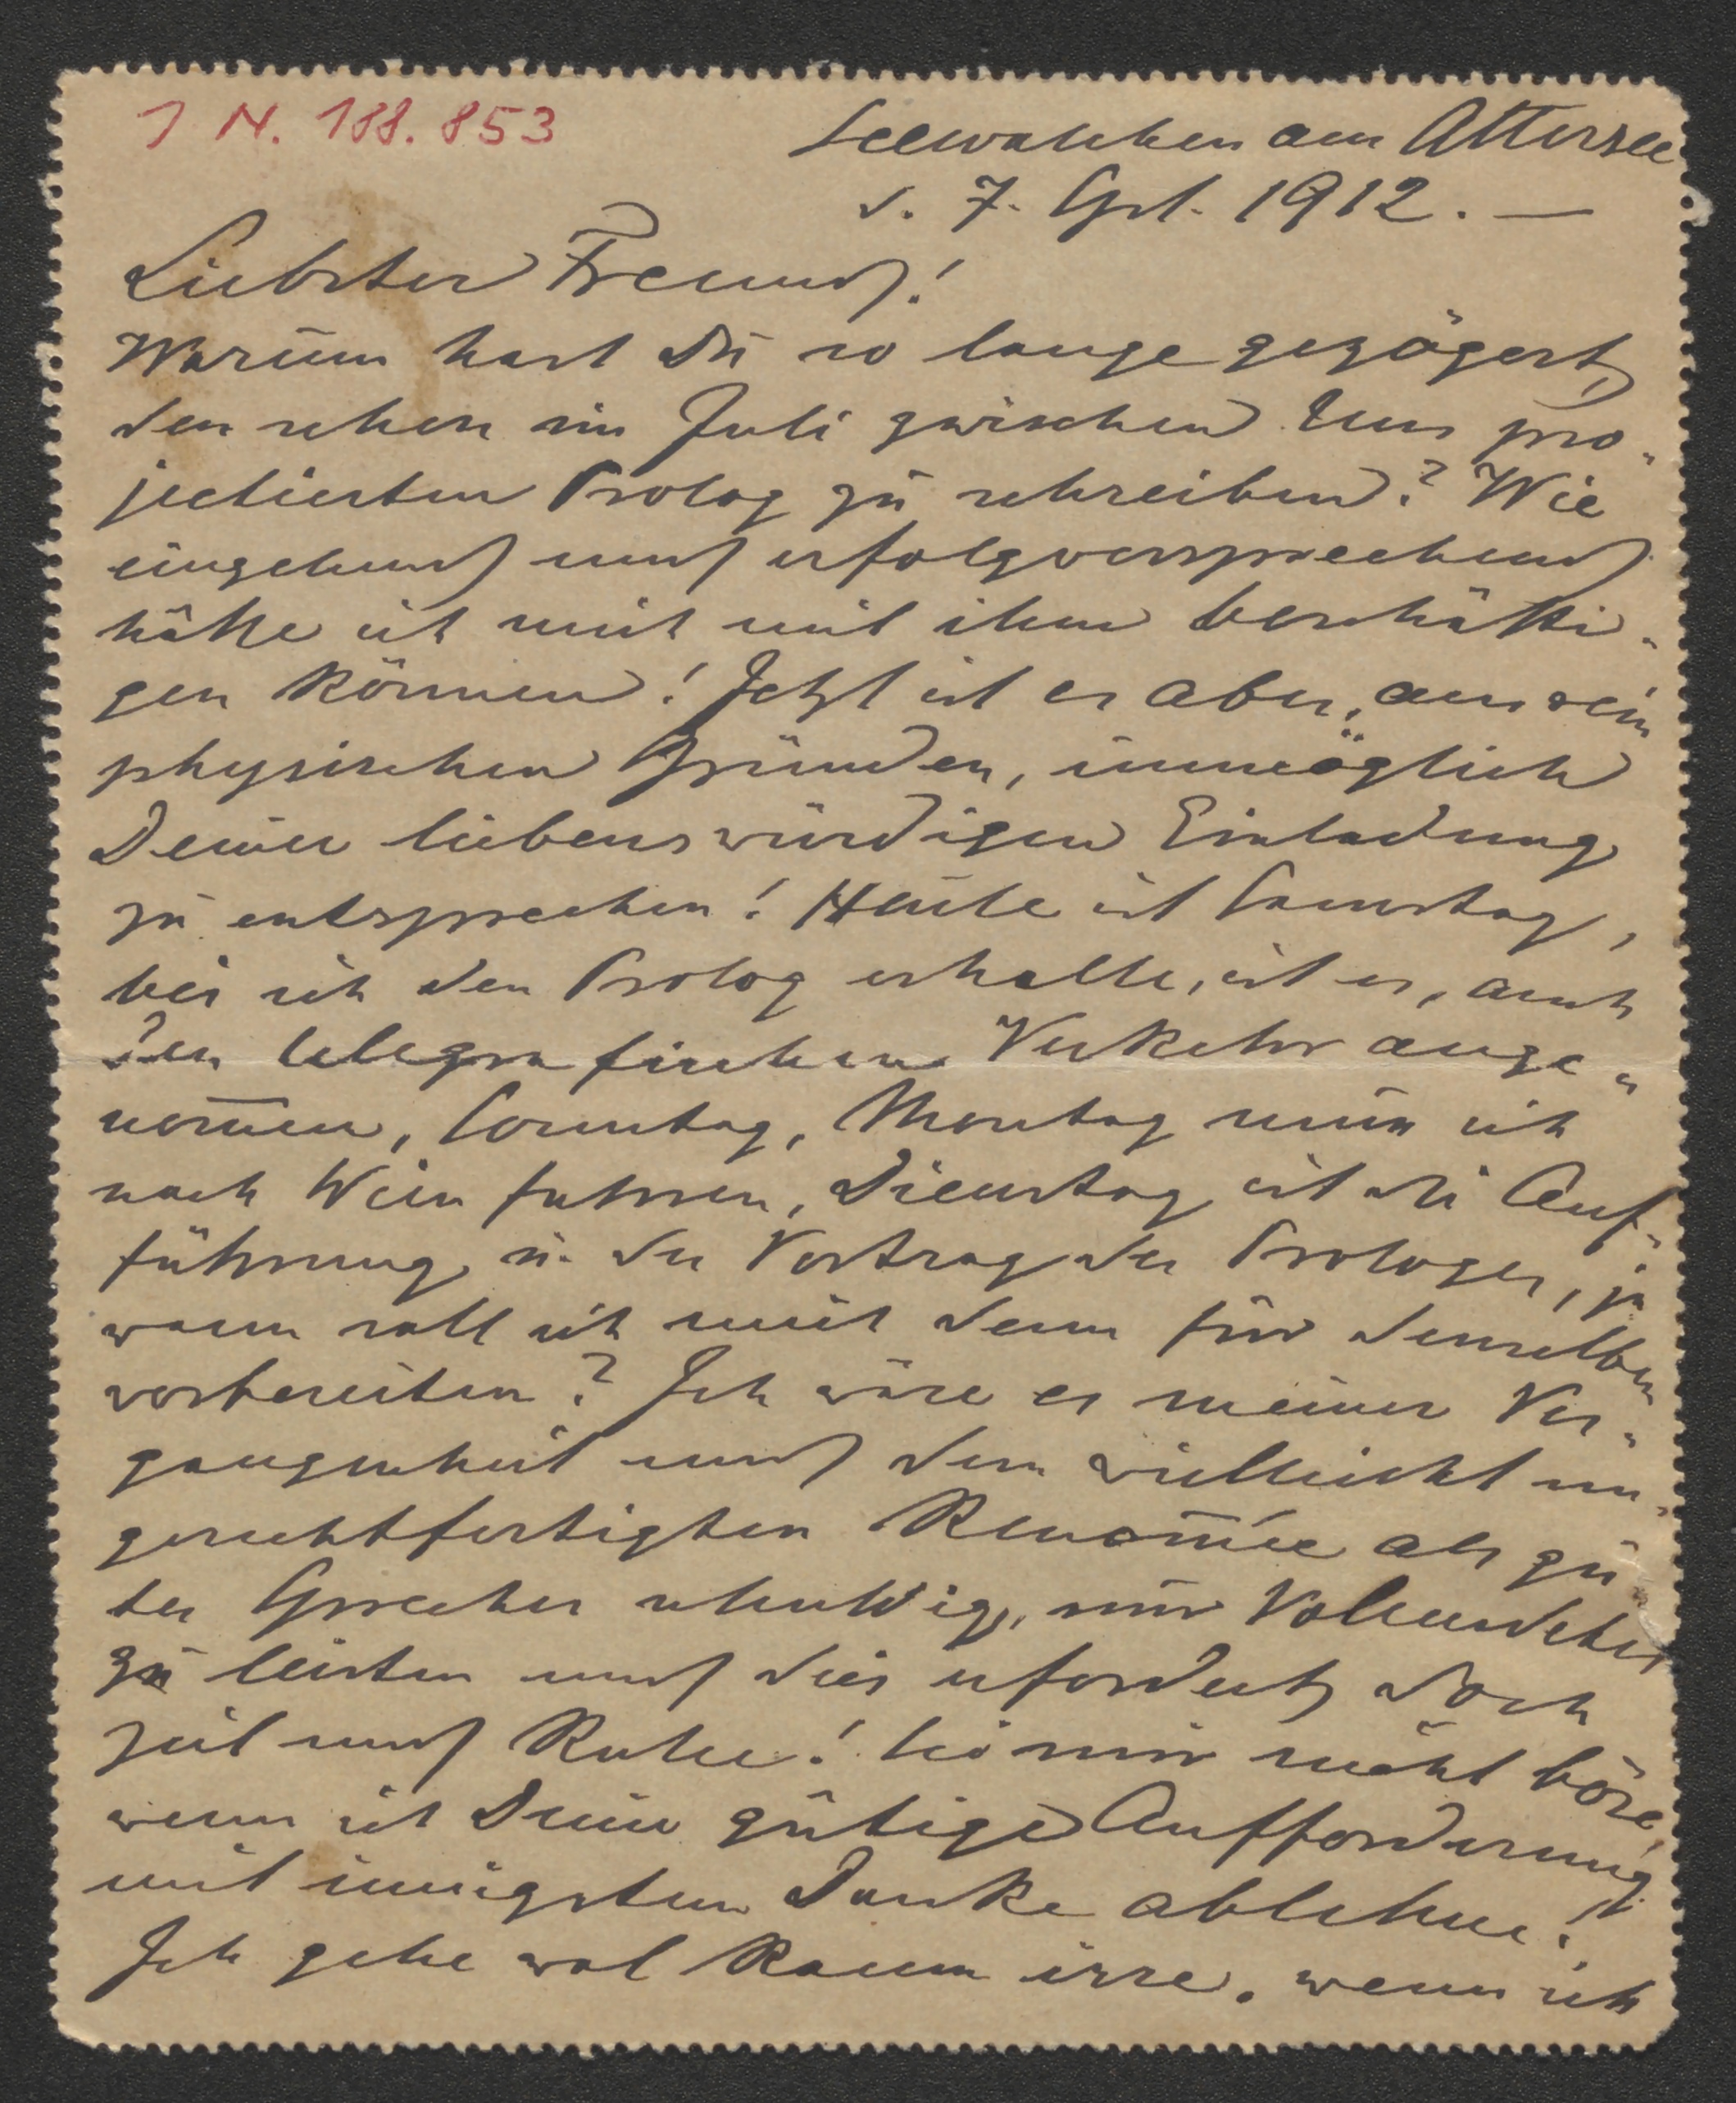 I N. 188.853
Seewalchen am Attersee
d. 7. Spt. 1912. —
Liebster Freund!
Warum hast Du so lange gezögert,
den schon im Juli zwischen uns pro-
jectierten Prolog zu schreiben? Wie
eingehend und erfolgversprechend
hätte ich mich mit ihm beschäfti-
gen können! Jetzt ist es aber, aus rein
physischen Gründen, unmöglich
Deiner liebenswürdigen Einladung
zu entsprechen! Heute ist Samstag,
bis ich den Prolog erhalte, ist es, auch
den telegrafischen Verkehr ange-
nom̅en, Sonntag, Montag muss ich
nach Wien fahren, Dienstag ist die Auf-
führung u. der Vortrag des Prologes, ja
wann soll ich mich denn für denselben
vorbereiten? Ich wäre es meiner Ver-
gangenheit und dem vielleicht un-
gerechtfertigten Renom̅ée als gu-
ter Sprecher schuldig, nur Vollendetes
zu leisten und dies erfordert doch
Zeit und Ruhe! Sei mir nicht böse,
wenn ich Deine gütige Aufforderung
mit innigstem Danke ablehne!
Ich gehe wol kaum irre, wenn ich